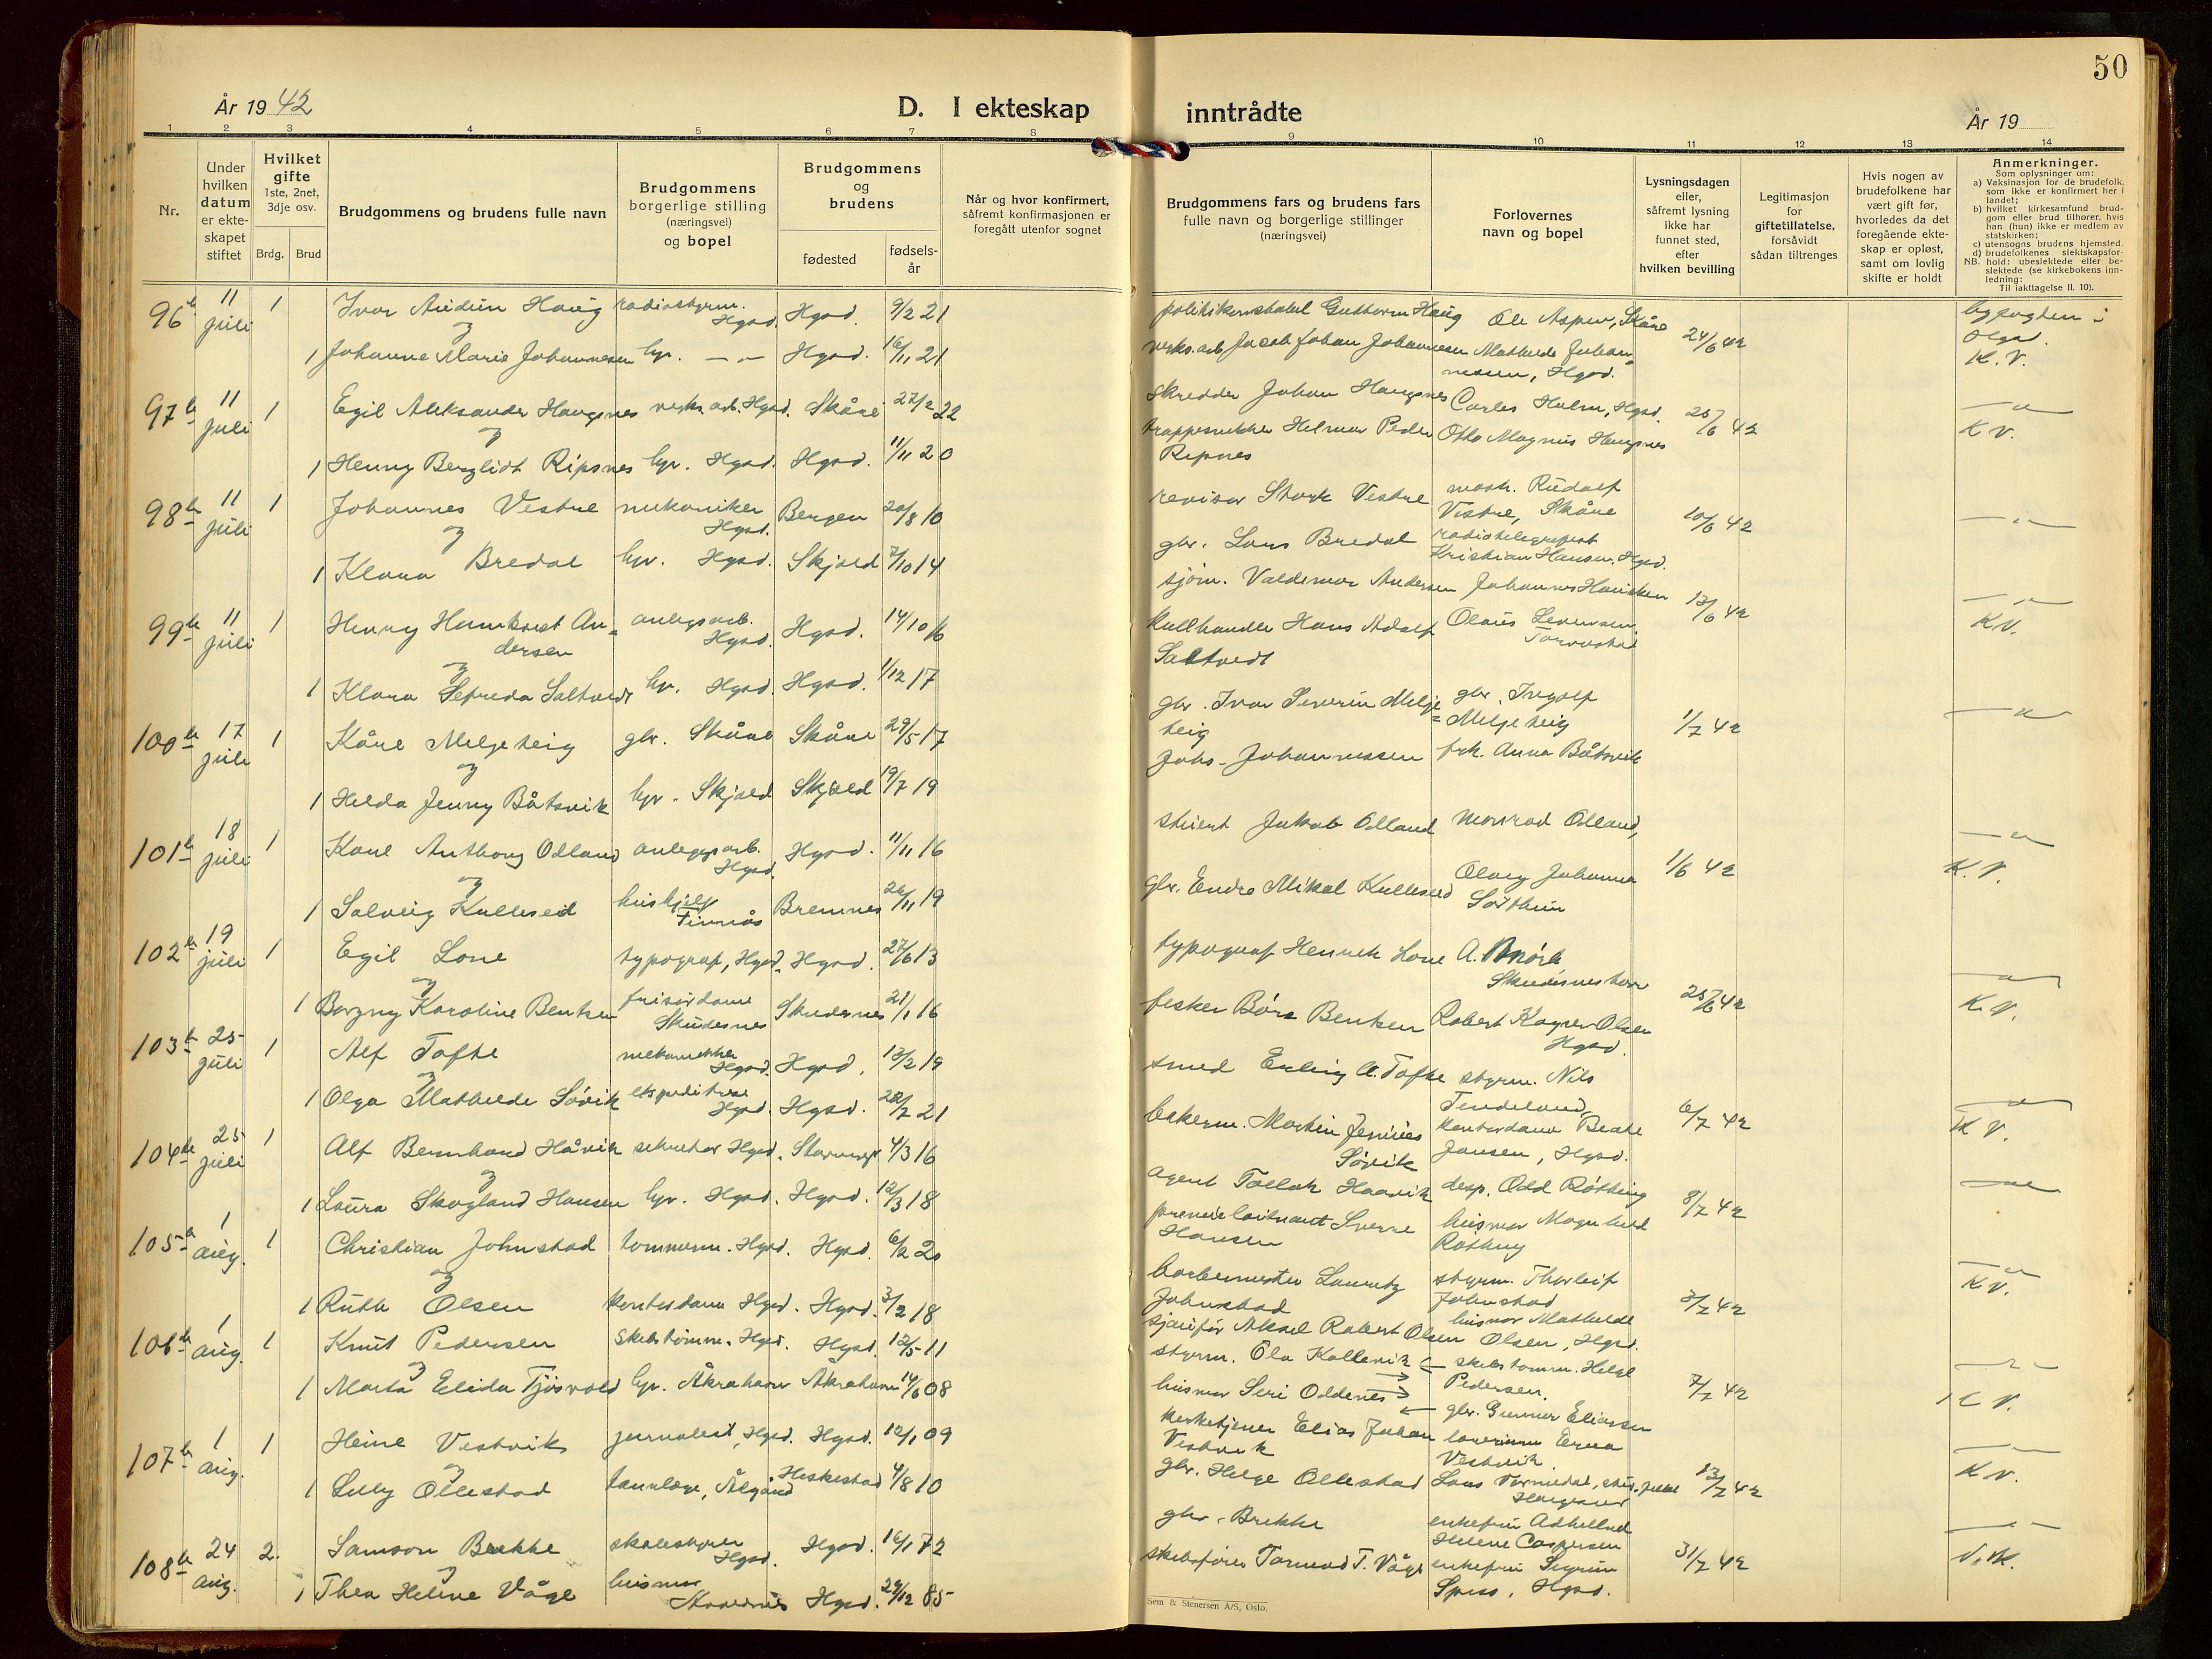 50
År 1942
D. I ekteskap inntrådte
År 19
1 2 3 4 5 6 7 8 9 10 11 12 13 14
Nr.
Under hvilken datum er ekte-skapet stiftet
Hvilket gifte
1ste, 2net, 3dje osv.
Brdg. Brud
Brudgommens og brudens fulle navn
Brudgommens borgerlige stilling (næringsvei) og bopel
Brudgommens og brudens
fødested
fødsels-år
Når og hvor konfirmert, såfremt konfirmasjonen er foregått utenfor sognet
Brudgommens fars og brudens fars fulle navn og borgerlige stillinger (næringsvei)
Forlovernes navn og bopel
Lysningsdagen eller, såfremt lysning ikke har funnet sted, efter hvilken bevilling
Legitimasjon for giftetillatelse, forsåvidt sådan tiltrenges
Hvis nogen av brudefolkene har vært gift før, hvorledes da det foregående ekte-skap er opløst, samt om lovlig skifte er holdt
Anmerkninger.
Som oplysninger om:
a) Vaksinasjon for de brudefolk, som ikke er konfirmert her i landet;
b) hvilket kirkesamfund brud-gom eller brud tilhører, hvis han (hun) ikke er medlem av statskirken;
c) utensogns brudens hjemsted.
d) brudefolkenes slektskapsfor-hold: ubeslektede eller be-slektede (se kirkebokens inn-ledning:
NB.
Til iakttagelse II. 10).
96 11 juli 1 Ivar Audun Haug radiostyrm. Hgsd. Hgsd. 9/2 21 politikonstabel Guttorm Haug Ole Aspen, Skåre 24/6 42 byfogden i Hgsd.
og
1 Johanne Marie Johannesen hr. Hgsd. 16/11 21 verks.arb Jacob Johan Johannesen Mathilde Johan-nesen, Hgsd. K.V.
97 11 juli 1 Egil Aleksander Haugsnes verks.arb. Hgsd. Skåre 27/2 22 skredder Johan Haugsnes Carles Holm, Hgsd. 25/6 42
og
1 Henny Berglidt Ripsnes hr. Hgsd. Hgsd. 11/11 20 Helmer Peder Ripnes Otto Magnus Haugsnes K.V.
98 11 juli 1 Johannes Vestre mekaniker Hgsd. Bergen 20/8 10 revisor Vestre Rudolf Vestre, Skåre 10/6 42
og
1 Klara Bredal hr. Hgsd. Skjold 7/10 14 gbr. Lars Bredal radiotelegrafist Kristian Hansen, Hgsd.
99 11 juli 1 Henry An-dersen anlegsarb. Hgsd. Hgsd. 14/10 16 sjøm. Valdemar Andersen Johannes 13/6 42
og
1 Klara Saltvedt hr. Hgsd. Hgsd. 1/12 17 kullhandler Hans Adolf Saltvedt Olaus Torvastad K.V.
100 17 juli 1 Kåre Meljeteig gbr. Skåre Skåre 29/5 17 gbr. Ivar Severin Melje-teig gbr. Ingolf Meljeteig 1/7 42
og
1 Helda Jenny Båtsvik hr. Skjold Skjold 19/7 19 Johs. Johannessen frk. Anna Båtsvik
101 18 juli 1 Kåre Anthony Odland anleggsarb. Hgsd. Hgsd. 11/11 16 Jakob Odland Monrad Odland, 1/6 42
og
1 Solveig Kulleseid hushjelp Finnås Bremnes 26/11 19 gbr. Endre Mikal Kulleseid Olaug Johanna K.V.
102 19 juli 1 Egil Lone typograf, Hgsd. Hgsd. 27/6 13 typograf Henrik Lone A. Mørk Skudesneshavn 25/6 42
og
1 Borgny Karoline Bentsen frisørdame Skudesnes Skudesnes 21/1 16 fisker Børe Bentsen Robert Kayser Olsen Hgsd. K.V.
103 25 juli 1 Alf Tofte Hgsd. Hgsd. 13/2 19 smed Erling A. Tofte styrm. Nils 6/7 42
og
1 Olga Mathilde Søvik ekspeditrise Hgsd. Hgsd. 22/7 21 bakerm. Martin Jenius Søvik kontordame Beate Jansen, Hgsd. K.V.
104 25 juli 1 Alf Bernhard Håvik sekretær Hgsd. Stavanger 4/3 16 agent Tollak Haavik desp. Odd Røthing 8/7 42
og
1 Laura Skogland Hansen hr. Hgsd. Hgsd. 12/3 18 premieløitnant Sverre Hansen husmor Magnhild Røthing
105 1 aug. 1 Christian Johnstad tømmerm. Hgsd. Hgsd. 6/2 20 barbermester Lauritz Johnstad styrm. Thorleif Johnstad 3/7 42
og
1 Ruth Olsen kontordame Hgsd. Hgsd. 3/2 18 sjåfør Aksel Robert Olsen husmor Mathilde Olsen, Hgsd. K.V.
106 1 aug. 1 Knut Pedersen skibstømm. Hgsd. Hgsd. 12/5 11 styrm. Ola Kallevik skibstømm. Helge Pedersen. 7/7 42
og
1 Marta Elida Tjøsvold hr. Åkrahavn Åkrahavn 14/6 08 husmor Siri Oddenes gbr. Gunnar Eliassen K.V.
107 1 aug. 1 Heine Vestvik journalist, Hgsd. Hgsd. 12/1 09 kirketjener Elias Johan Vestvik lærerinne Erna Vestvik 13/7 42
og
1 Lilly Ollestad tannlege, Ålgård Heskestad 4/8 10 gbr. Helge Ollestad Lars K.V.
108 24 aug. 2. Samson Brekke skolestyrer Hgsd. Hgsd. 16/1 72 gbr. Brekke enkefru Helene Caspersen 31/7 42
og
1 Thea Helene Våge husmor Hgsd. 29/12 85 skibsfører Tormod T. Våge enkefru Sigrun Spiss, Hgsd. V.K.
Sem & Stenersen A/S, Oslo.